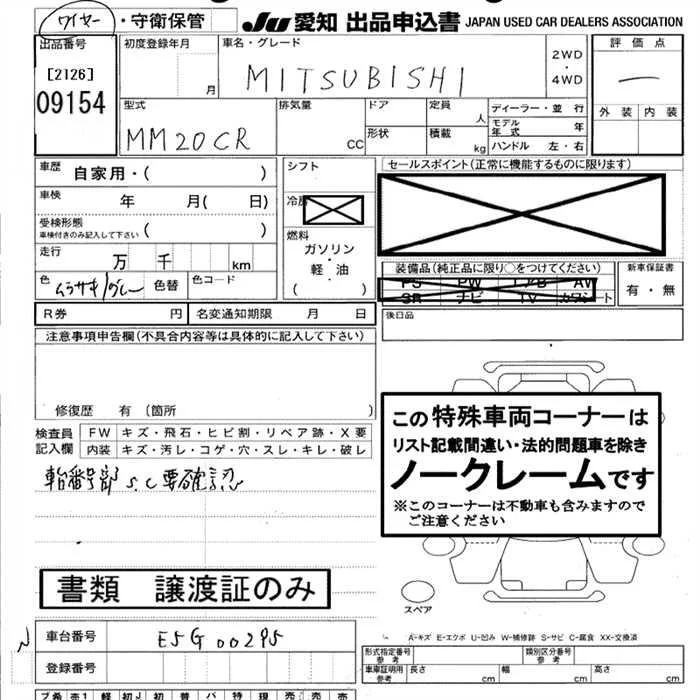 ワイヤー ・守衛保管
JU 愛知 出品申込書 JAPAN USED CAR DEALERS ASSOCIATION
出品番号
[2126]
09154
初度登録年月
月
車名・グレード
MITSUBISHI
2WD
・
4WD
評価点
外装 内装
型式
MM20CR
排気量
CC
ドア
形状
定員
人
積載
kg
ディーラー・並 行
モデル年式 年
ハンドル 左・右
車歴 自家用・( )
車検 年 月( 日)
受検形態
車検付きのみ記入して下さい ( )
走行 万 千 km
色 ムラサキ/グレー 色替 色コード
シフト
冷房
燃料
ガソリン
・
軽 油
( )
セールスポイント(正常に機能するものに限ります)
装備品(純正品に限り○をつけてください)
PS PW エアB AW
SR ナビ TV カワシート
新車保証書
有・無
R券 円 名変通知期限 月 日
後日品
注意事項申告欄(不具合内容等は具体的に記入して下さい)
修復歴 有 〔箇所 〕
検査員
記入欄
FW キズ・飛石・ヒビ割・リペア跡・X要
内装 キズ・汚レ・コゲ・穴・スレ・キレ・破レ
この特殊車両コーナーは
リスト記載間違い・法的問題車を除き
ノークレームです
※このコーナーは不動車も含みますので
ご注意ください
S.C要確認
書類 譲渡証のみ
スペア
車台番号 E5G00295
登録番号
A-キズ E-エクボ U-凹み W-補修跡 S-サビ C-腐食 XX-交換済
形式指定番号
参考
類別区分番号
参考
車庫証明用
参考
長さ cm 幅 cm 高さ cm